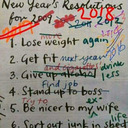 New Year's Resolutions
for 2009 2010 2011 2012
1. Lose weight again
2. Get fit next year
3. Give up alcohol drink less
Find job
4. Stand up to boss
Try to
5. Be nicer to my wife ex
6. Sort out junk in